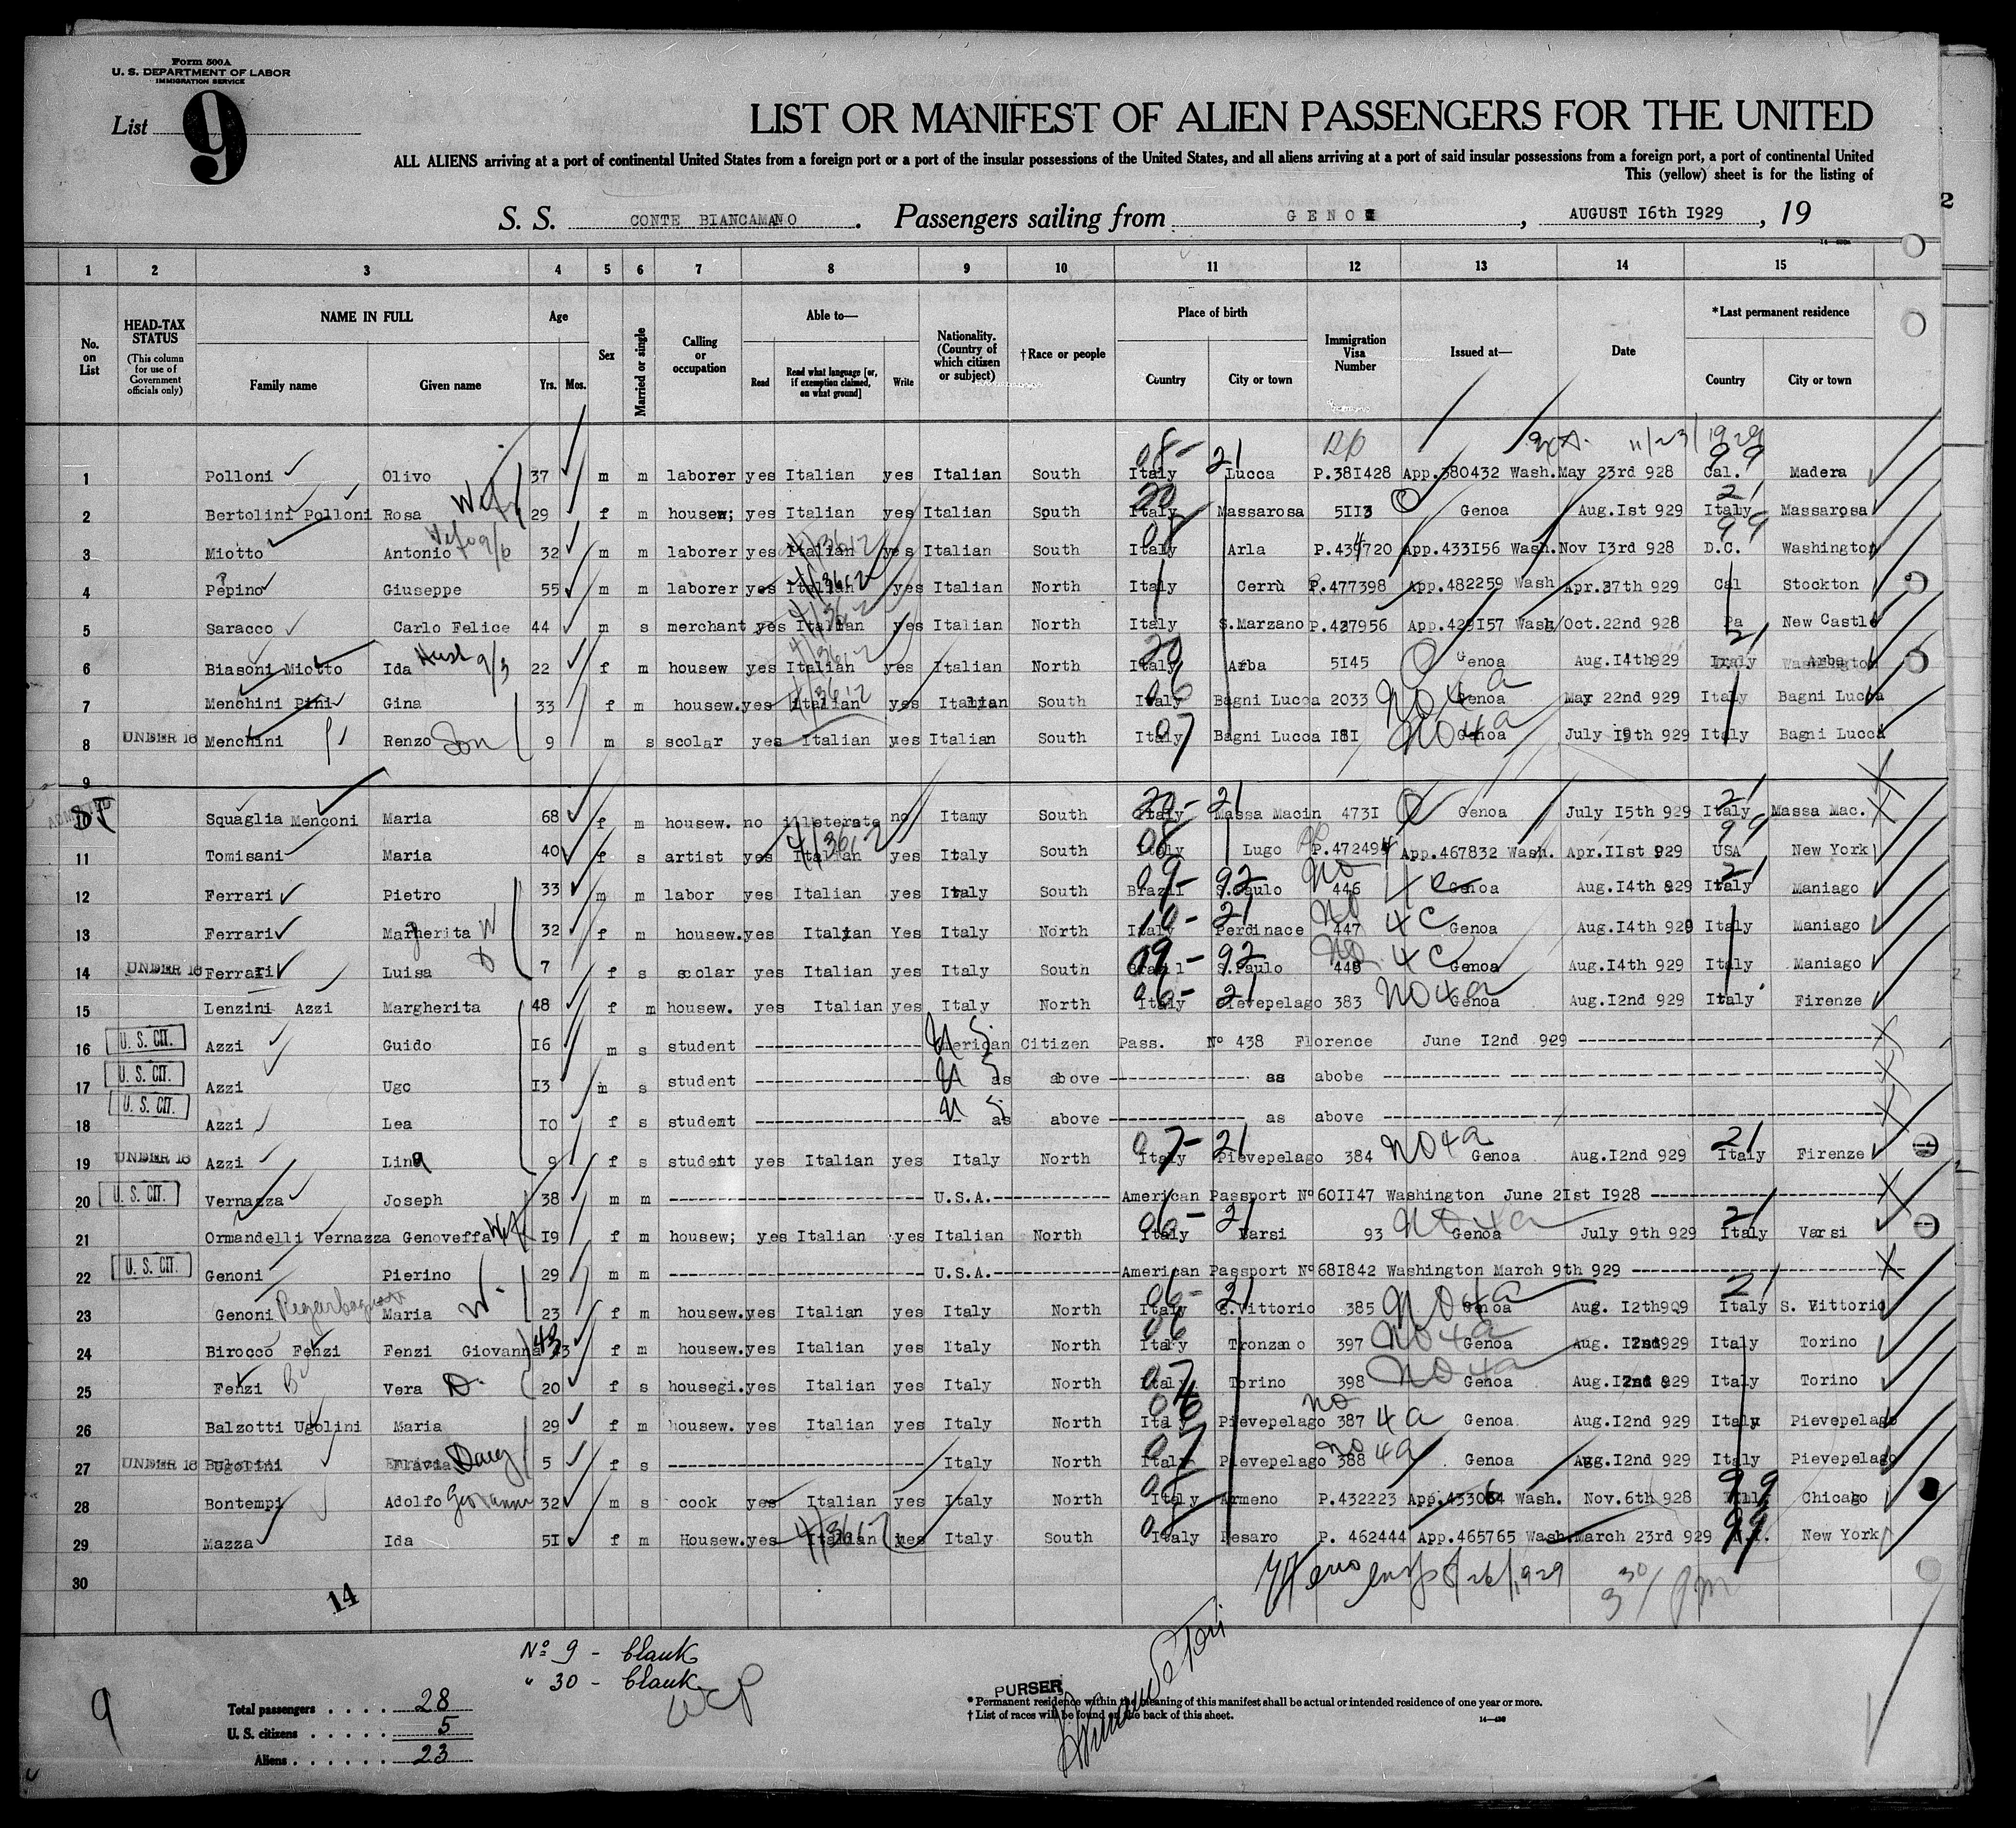 Form 500A
U. S. DEPARTMENT OF LABOR
IMMIGRATION SERVICE
List 9
LIST OR MANIFEST OF ALIEN PASSENGERS FOR THE UNITED
ALL ALIENS arriving at a port of continental United States from a foreign port or a port of the insular possessions of the United States, and all aliens arriving at a port of said insular possessions from a foreign port, a port of continental United
This (yellow) sheet is for the listing of
S. S. CONTE BIANCAMANO. Passengers sailing from GENO, AUGUST I6th I929, 19
1 2 3 4 5 6 7 8 9 10 11 12 13 14 15
No. on List HEAD-TAX STATUS (This column for use of Government officials only) NAME IN FULL Family name Given name Age Yrs. Mos. Sex Married or single Calling or occupation Able to— Read Read what language [or, if exemption claimed, on what ground] Write Nationality. (Country of which citizen or subject) †Race or people Place of birth Country City or town Immigration Visa Number Issued at— Date *Last permanent residence Country City or town
11/23/1929
1 Polloni Olivo 37 m m laborer yes Italian yes Italian South Italy Lucca P.38I428 App.380432 Wash. May 23rd 928 Cal. Madera
2 Bertolini Polloni Rosa Wife 29 f m housew; yes Italian yes Italian South Italy Massarosa 5II3 Genoa Aug.Ist 929 Italy Massarosa
3 Miotto Antonio 32 m m laborer yes Italian yes Italian South Italy Arla P.434720 App.433I56 Wash. Nov I3rd 928 D.C. Washington
4 Pepino Giuseppe 55 m m laborer yes Italian yes Italian North Italy Cerrù P.477398 App.482259 Wash Apr.27th 929 Cal Stockton
5 Saracco Carlo Felice 44 m s merchant yes Italian yes Italian North Italy S.Marzano P.427956 App.429I57 Wash Oct.22nd 928 Pa New Castle
6 Biasoni Miotto Ida Husb 9/3 22 f m housew yes Italian yes Italian North Italy Arba 5I45 Genoa Aug.I4th929 Italy Arba
7 Menchini Pini Gina 33 f m housew. yes Italian yes Italian South Italy Bagni Lucca 2033 NO 4a Genoa May 22nd 929 Italy Bagni Lucca
8 UNDER 16 Menchini Renzo Son 9 m s scolar yes Italian yes Italian South Italy Bagni Lucca I8I NO 4a Genoa July I9th 929 Italy Bagni Lucca
9
Squaglia Menconi Maria 68 f m housew. no illeterate no Itamy South Italy Massa Macin 473I Genoa July I5th 929 Italy Massa Mac.
11 Tomisani Maria 40 f s artist yes Italian yes Italy South Italy Lugo P.472494 App.467832 Wash. Apr.IIst 929 USA New York
12 Ferrari Pietro 33 m m labor yes Italian yes Italy South Brazil S.Paulo 446 Genoa Aug.I4th 929 Italy Maniago
13 Ferrari Margherita W 32 f m housew. yes Italian Yes Italy North Italy Perdinace 447 NO 4C Genoa Aug.I4th 929 Italy Maniago
14 UNDER 16 Ferrari Luisa D 7 f s scolar yes Italian yes Italy South Brazil S.Paulo 448 NO 4C Genoa Aug.I4th 929 Italy Maniago
15 Lenzini Azzi Margherita 48 f m housew. yes Italian yes Italy North Italy Pievepelago 383 NO 4a Genoa Aug.I2nd 929 Italy Firenze
16 U. S. CIT. Azzi Guido I6 m s student American Citizen Pass. Nº 438 Florence June I2nd 929
17 U. S. CIT. Azzi Ugo I3 m s student as above as abobe
18 U. S. CIT. Azzi Lea IO f s student as above as above
19 UNDER 16 Azzi Lina 9 f s student yes Italian yes Italy North Italy Pievepelago 384 NO 4a Genoa Aug.I2nd 929 Italy Firenze
20 U. S. CIT. Vernazza Joseph 38 m m U.S.A. American Passport Nº60II47 Washington June 2Ist I928
21 Ormandelli Vernazza Genoveffa I9 f m housew; yes Italian yes Italian North Italy Varsi 93 NO 4a Genoa July 9th 929 Italy Varsi
22 U. S. CIT. Genoni Pierino 29 m m U.S.A. American Passport Nº68I842 Washington March 9th 929
23 Genoni Maria W. 23 f m housew. yes Italian yes Italy North Italy S.Vittorio 385 NO 4a Genoa Aug. I2th9Q9 Italy S. Vittorio
24 Birocco Fenzi Fenzi Giovanna 43 f m housew. yes Italian yes Italy North Italy Tronzano 397 NO 4a Genoa Aug. I2nd929 Italy Torino
25 Fenzi Vera D. 20 f s housegi. yes Italian yes Italy North Italy Torino 398 NO 4a Genoa Aug.I2nd 929 Italy Torino
26 Balzotti Ugolini Maria 29 f m housew. yes Italian yes Italy North Italy Pievepelago 387 NO 4a Genoa Aug.I2nd 929 Italy Pievepelago
27 UNDER 16 Ugolini Flavia Daug 5 f s Italy North Italy Pievepelago 388 NO 4a Genoa Aug.I2nd 929 Italy Pievepelago
28 Bontempi Adolfo Giovanni 32 m s cook yes Italian yes Italy North Italy Armeno P.432223 App.433064 Wash. Nov.6th 928 Ill Chicago
29 Mazza Ida 5I f m Housew. yes Italian yes Italy South Italy Pesaro P. 462444 App.465765 Wash. March 23rd 929 New York
30
14
3 30/ pm
Nº 9 - blank
" 30 - blank
9
Total passengers 28
U. S. citizens 5
Aliens 23
PURSER
* Permanent residence within the meaning of this manifest shall be actual or intended residence of one year or more.
† List of races will be found on the back of this sheet.